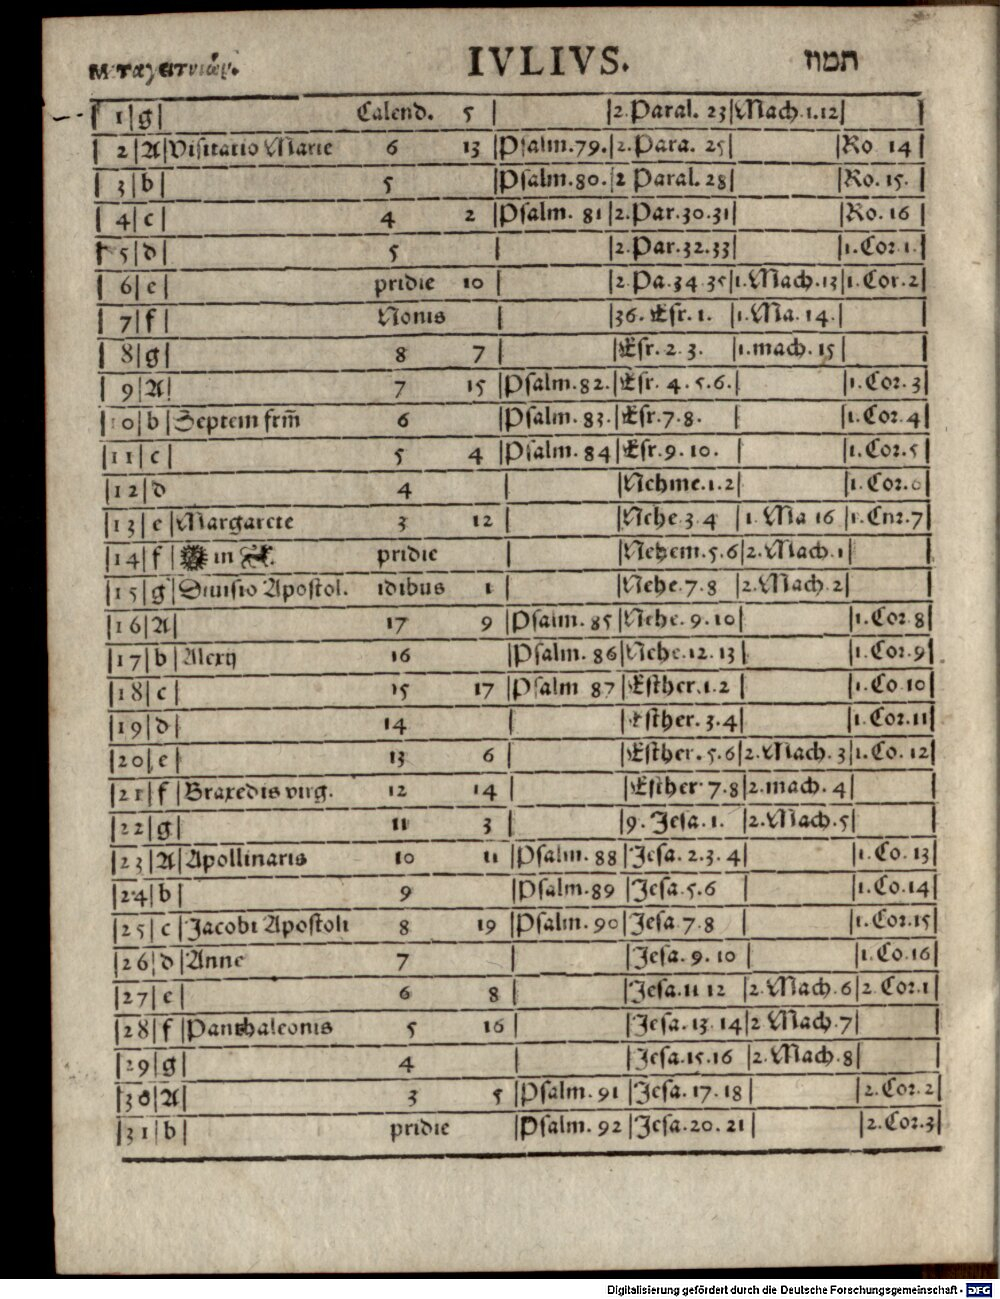 Μεταγειτνιών. IVLIVS. תמוז
1 g Calend. 5 2. Paral. 23 Mach. 1.12
2 A Visitatio Marie 6 13 Psalm. 79. 2. Para. 25 Ro 14
3 b 5 Psalm. 80. 2 Paral. 28 Ro. 15.
4 c 4 2 Psalm. 81 2. Par. 30. 31 Ro. 16
5 d 5 2. Par. 32. 33 1. Cor. 1
6 e pridie 10 2. Pa. 34 35 1. Mach. 13 1. Cor. 2
7 f Nonis 36. Esr. 1. 1. Ma. 14.
8 g 8 7 Esr. 2. 3. 1. mach. 15
9 A 7 15 Psalm. 82. Esr. 4. 5. 6. 1. Cor. 3
10 b Septem frm̄ 6 Psalm. 83. Esr. 7. 8. 1. Cor. 4
11 c 5 4 Psalm. 84 Esr. 9. 10. 1. Cor. 5
12 d 4 Nehme. 1. 2 1. Cor. 6
13 e Margarete 3 12 Nehe 3 4 1. Ma 16 1. Cnr. 7
14 f in pridie Nehem. 5. 6 2. Mach. 1
15 g Diuisio Apostol. idibus 1 Nehe. 7. 8 2. Mach. 2
16 A 17 9 Psalm. 85 Nehe. 9. 10 1. Cor. 8
17 b Alexij 16 Psalm. 86 Nehe. 12. 13 1. Cor. 9
18 c 15 17 Psalm 87 Esther. 1. 2 1. Co. 10
19 d 14 Esther. 3. 4 1. Cor. 11
20 e 13 6 Esther. 5. 6 2. Mach. 3 1. Co. 12
21 f Braxedis virg. 12 14 Esther 7. 8 2. mach. 4
22 g 11 3 9. Jesa. 1. 2. Mach. 5
23 A Apollinaris 10 11 Psalm. 88 Jesa. 2. 3. 4 1. Co. 13
24 b 9 Psalm. 89 Jesa. 5. 6 1. Co. 14
25 c Jacobi Apostoli 8 19 Psalm. 90 Jesa. 7. 8 1. Cor. 15
26 d Anne 7 Jesa. 9. 10 1. Co. 16
27 e 6 8 Jesa. 11 12 2. Mach. 6 2. Cor. 1
28 f Panthaleonis 5 16 Jesa. 13. 14 2 Mach. 7
29 g 4 Jesa. 15. 16 2. Mach. 8
30 A 3 5 Psalm. 91 Jesa. 17. 18 2. Cor. 2
31 b pridie Psalm. 92 Jesa. 20. 21 2. Cor. 3
Digitalisierung gefördert durch die Deutsche Forschungsgemeinschaft - DFG